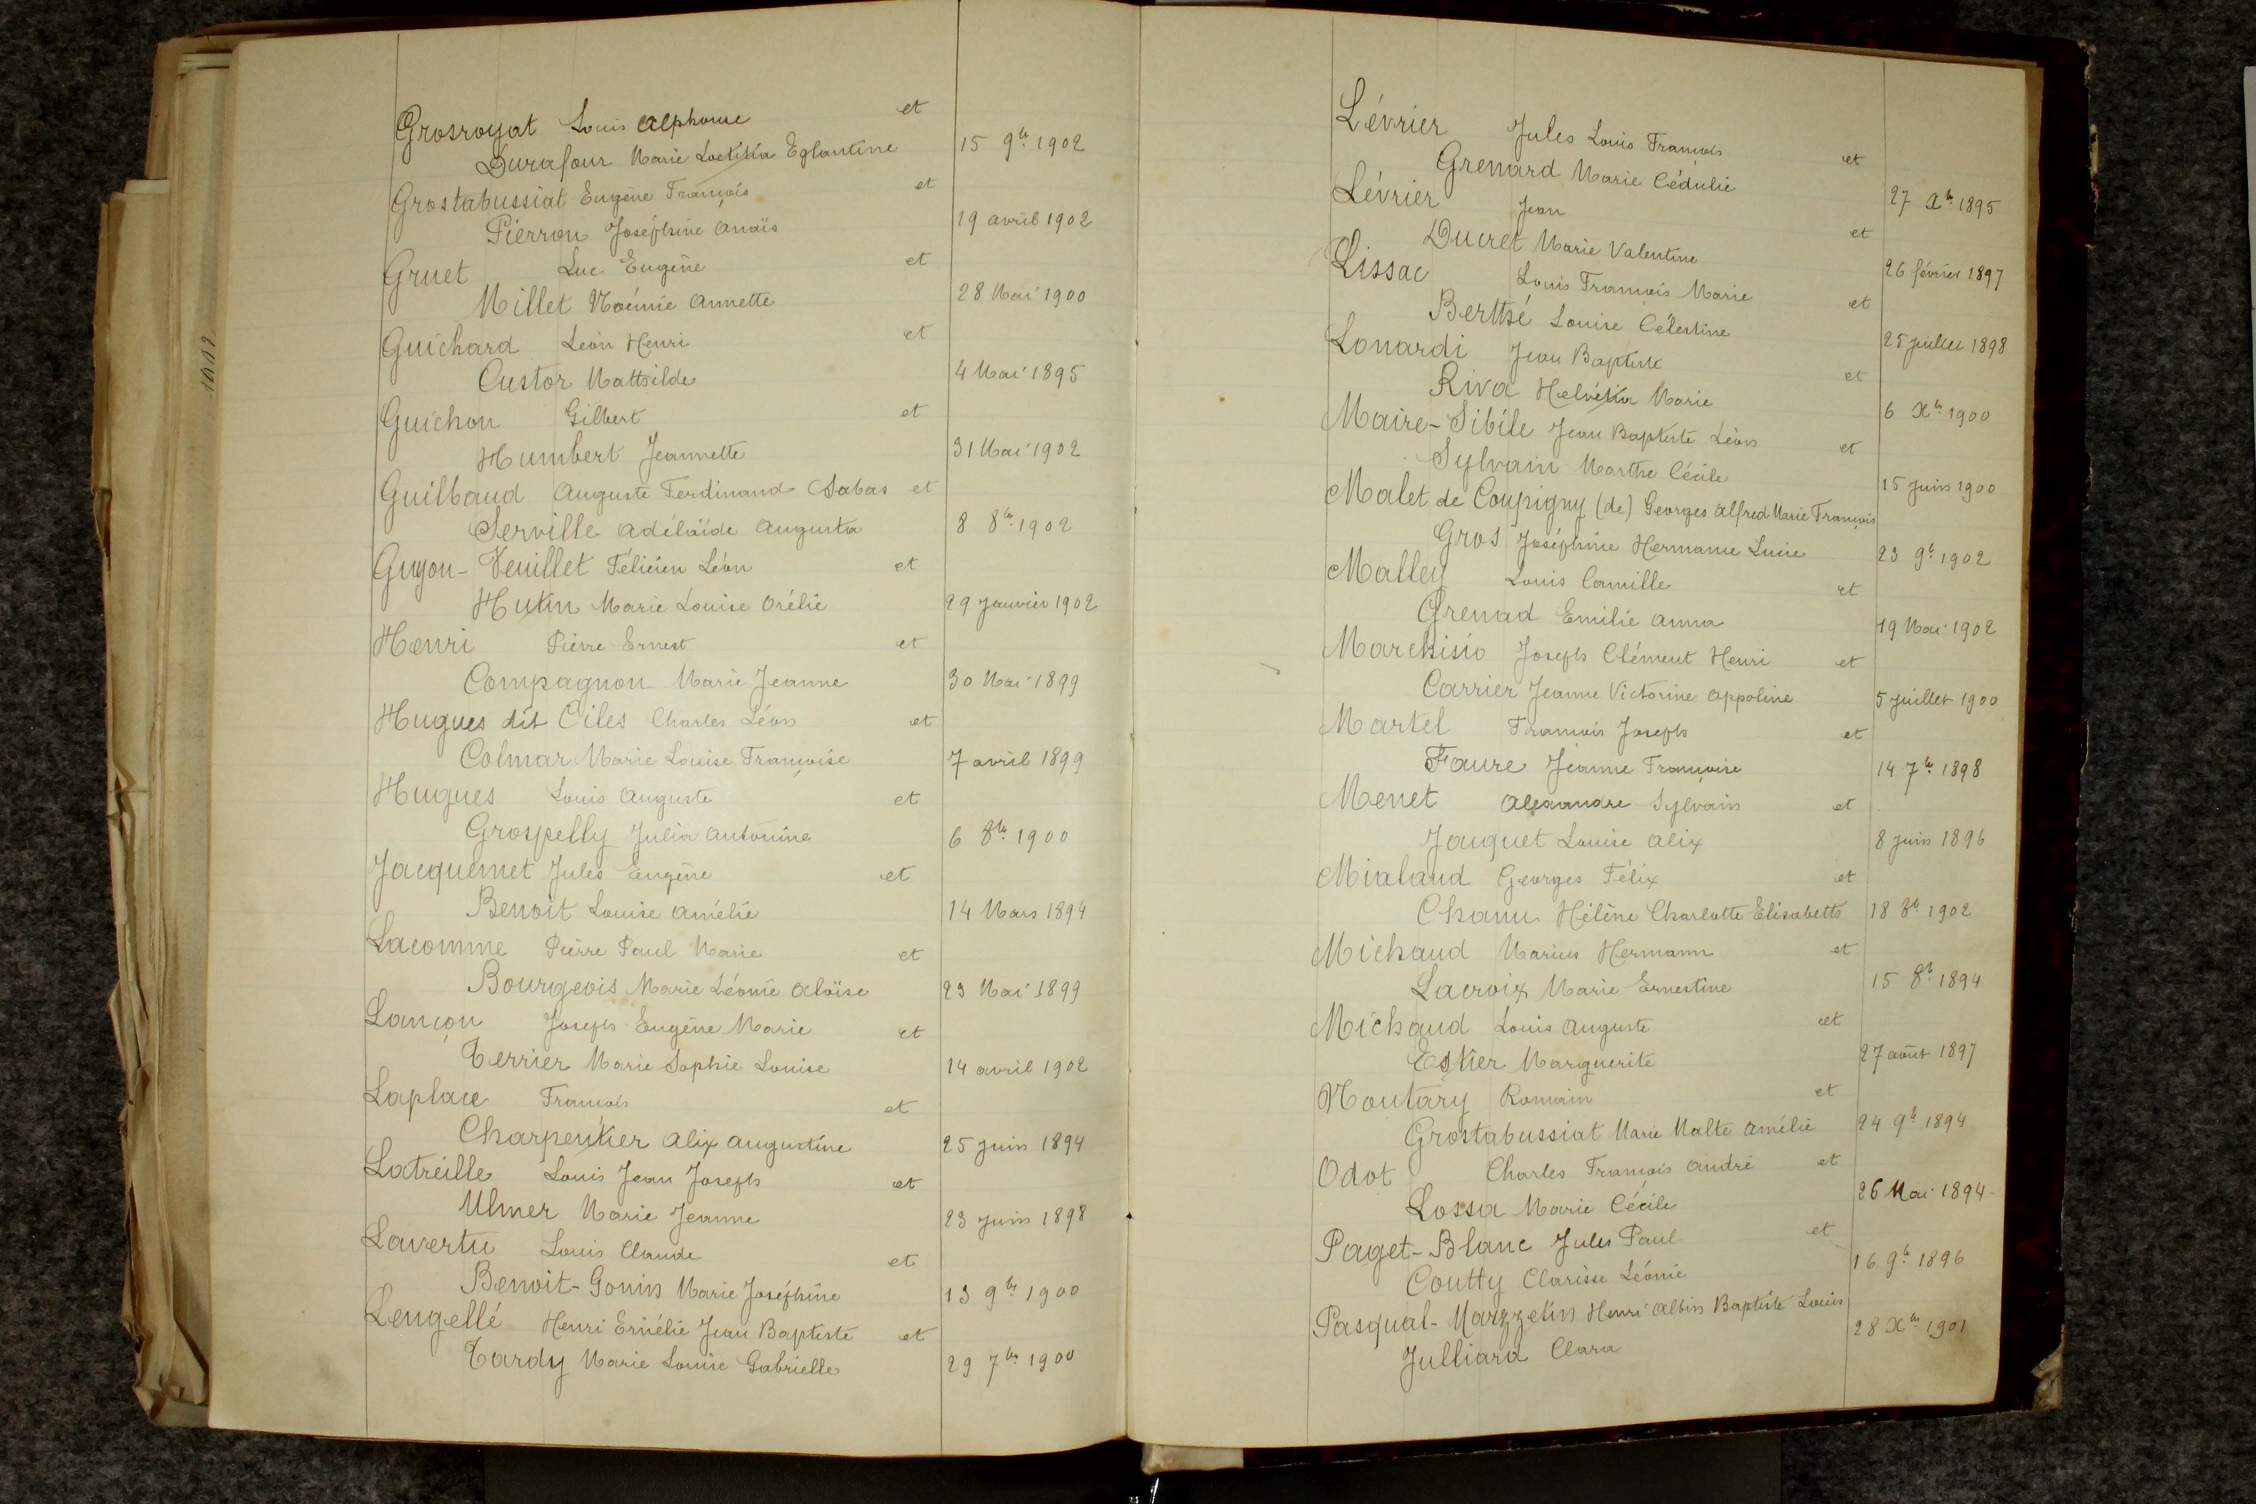 Grosroyat Louis Alphonse et
Durafour Marie Laetitia Eglantine 15 9bre 1902
Grostabussiat Eugène François et
Pierron Joséphine Anaïs 19 avril 1902
Gruet Luc Eugène et
Millet Noémie Annette 28 Mai 1900
Guichard Léon Henri et
Custor Mathilde 4 Mai 1895
Guichon Gilbert et
Humbert Jeannette 31 Mai 1902
Guilbaud Auguste Ferdinand Sabas et
Serville Adélaïde Augusta 8 8bre 1902
Guyon-Veuillet Félicien Léon et
Hutin Marie Louise Orélie 29 Janvier 1902
Henri Pierre Ernest et
Compagnon Marie Jeanne 30 Mai 1899
Hugues dit Ciles Charles Léon et
Colmar Marie Louise Françoise 7 avril 1899
Hugues Louis Auguste et
Grospelly Julia Antonine 6 8bre 1900
Jacquemet Jules Eugène et
Benoit Louise Amélie 14 Mars 1894
Lacomme Pierre Paul Marie et
Bourgeois Marie Léonie Aloïse 23 Mai 1899
Lançon Joseph Eugène Marie et
Terrier Marie Sophie Louise 14 avril 1902
Laplace François et
Charpentier Alix Augustine 25 Juin 1894
Latreille Louis Jean Joseph et
Ulmer Marie Jeanne 23 Juin 1898
Lavertu Louis Claude et
Benoit-Gonin Marie Joséphine 13 9bre 1900
Lengellé Henri Ernélie Jean Baptiste et
Tardy Marie Louise Gabrielle 29 7bre 1900
Lévrier Jules Louis François et
Grenard Marie Cédulie 27 Xbre 1895
Lévrier Jean et
Ducret Marie Valentine 26 février 1897
Lissac Louis François Marie et
Berthé Louise Célestine 25 Juillet 1898
Lonardi Jean Baptiste et
Riva Helvétia Marie 6 Xbre 1900
Maire-Sibile Jean Baptiste Léon et
Sylvain Marthe Cécile 15 Juin 1900
Malet de Coupigny (de) Georges Alfred Marie François
Gros Joséphine Hermance Lucie 23 9bre 1902
Malley Louis Camille et
Grenad Emilie Anna 19 Mai 1902
Marchisio Joseph Clément Henri et
Carrier Jeanne Victorine Appoline 5 Juillet 1900
Martel François Joseph et
Faure Jeanne Françoise 14 7bre 1898
Menet Alexandre Sylvain et
Jouquet Louise Alix 8 Juin 1896
Mialaud Georges Félix et
Chanu Hélène Charlotte Elisabeth 18 8bre 1902
Michaud Marius Hermann et
Lacroix Marie Ernestine 15 8bre 1894
Michaud Louis Auguste et
Estier Marguerite 27 août 1897
Moutary Romain et
Grostabussiat Marie Malte Amélie 24 9bre 1894
Odot Charles François André et
Lossa Marie Cécile 26 Mai 1894
Paget-Blanc Jules Paul et
Coutty Clarisse Léonie 16 9bre 1896
Pasqual-Marzzelin Henri Albin Baptiste Louis
Julliard Clara 28 Xbre 1901